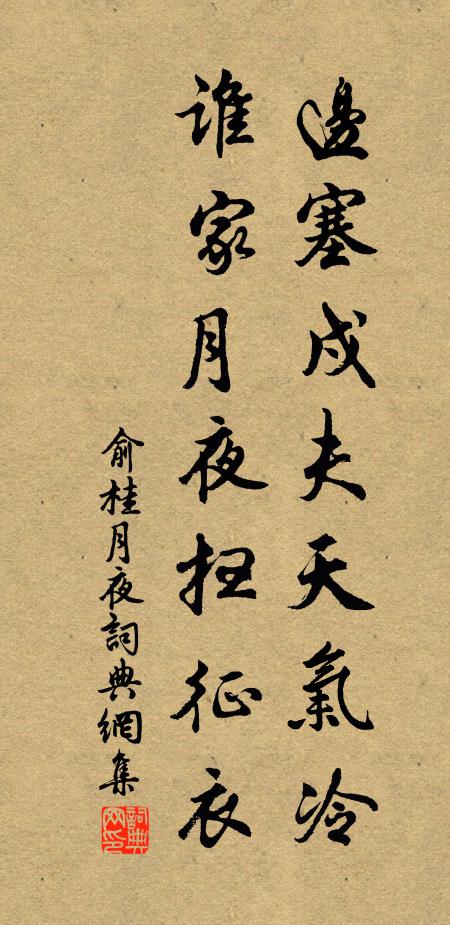 邊塞戍夫天氣冷
誰家月夜扭征衣
俞桂月夜詞典網集
詞典网印